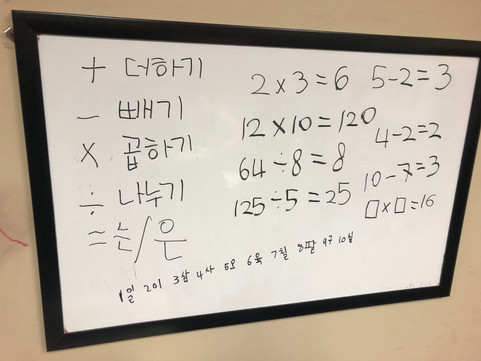 + 더하기
− 빼기
× 곱하기
÷ 나누기
= 는/은
2×3=6
12×10=120
64÷8=8
125÷5=25
5-2=3
4-2=2
10-7=3
□×□=16
1일 2이 3삼 4사 5오 6육 7칠 8팔 9구 10십